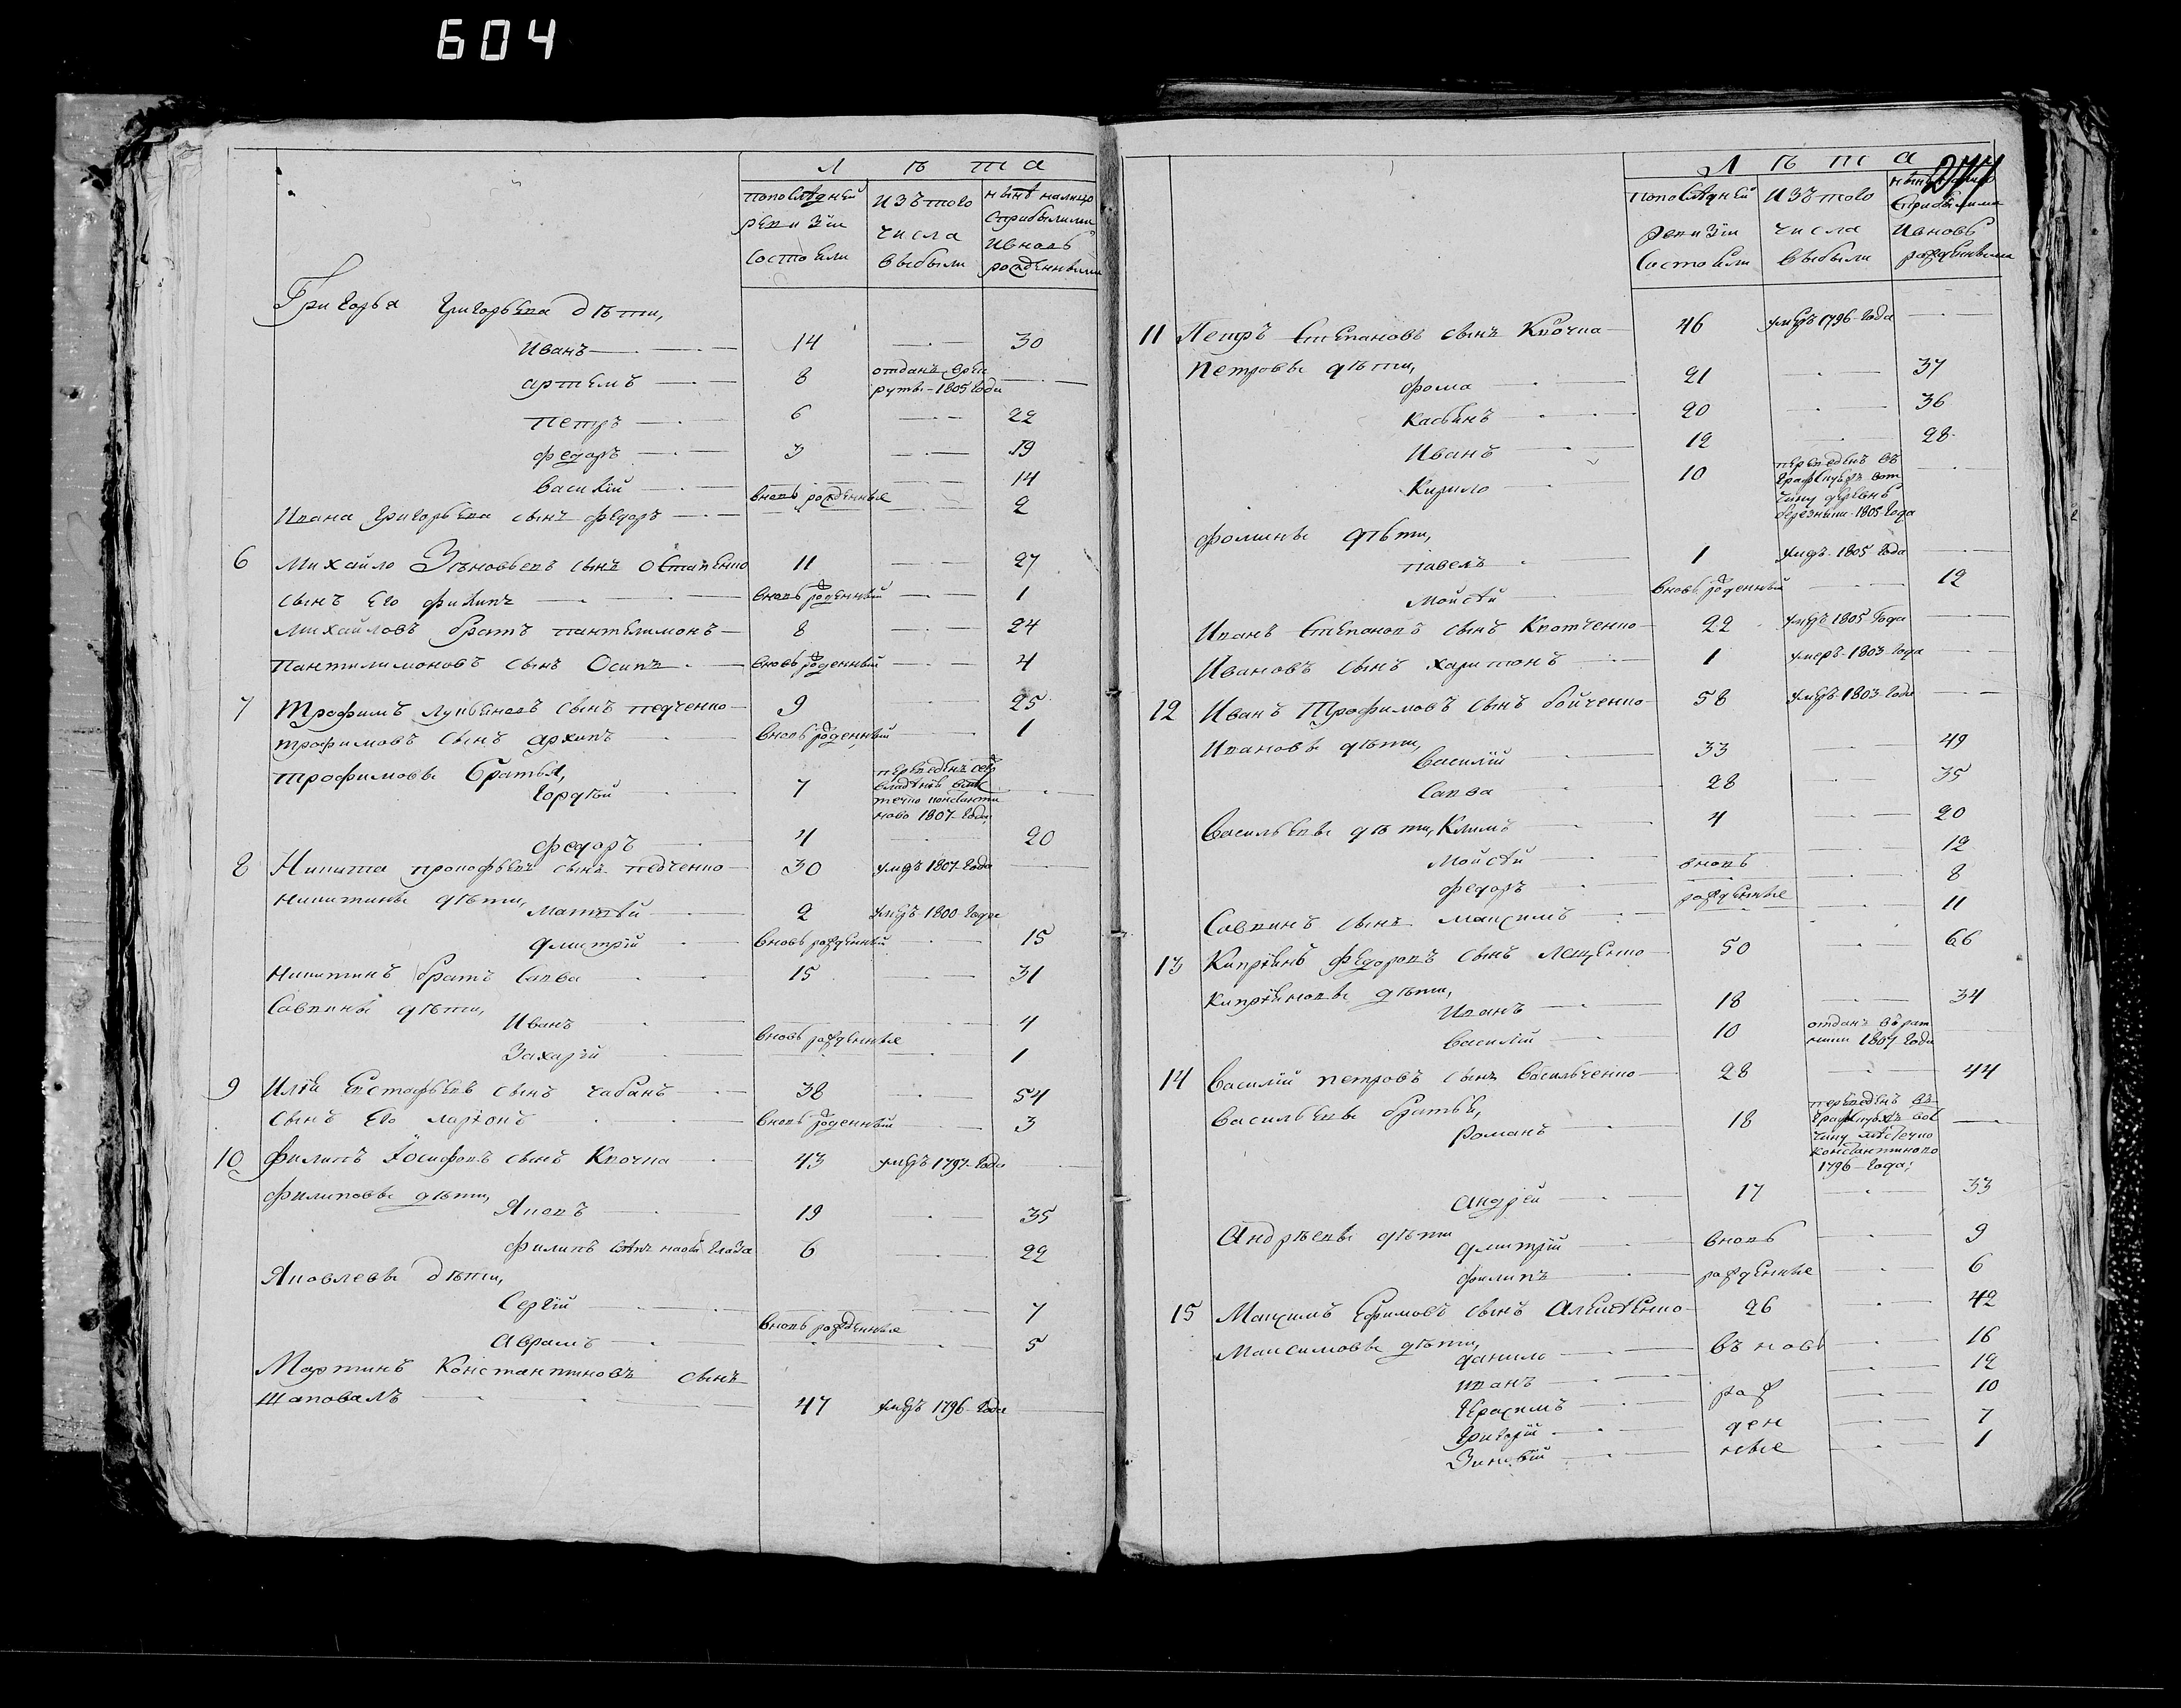 604
Л ѣ т а
по последней ревизіи состояли
изъ того числа выбыли
ныне налицо с прибылыми и вновь рожденными
Григорья Григорьева дѣти,
Иванъ 14 30
Артемъ 8 отданъ в рекруты 1805 года
Петръ 6 22
Федоръ 3 19
Василій вновь рожденные 14
Ивана Григорьева сынъ Федоръ 2
6 Михайло Зѣновьевъ сынъ Остапенко 11 27
сынъ его Филипъ вновь рожденный 1
Михайловъ братъ Пантелимонъ 8 24
Пантилимоновъ сынъ Осипъ вновь рожденный 4
7 Трофимъ Лукьяновъ сынъ Педченко 9 25
Трофимовъ сынъ Архипъ вновь рожденный 1
Трофимовы братья,
Гордѣй 7 переведенъ 1807 года
Федоръ 4 20
8 Никита Прокофьевъ сынъ Педченко 30 умеръ 1807 года
Никитины дѣти,
Матвѣй 2 умеръ 1800 года
Дмитрій вновь рожденный 15
Никитинъ братъ Савва 15 31
Саввины дѣти,
Иванъ 4
вновь рожденные
Захарій 1
9 Илія Евстафьевъ сынъ Чабанъ 38 54
сынъ его Ларіонъ вновь рожденный 3
10 Филипъ Іосифовъ сынъ Квочка 43 умеръ 1797 года
Филиповы дѣти,
Яковъ 19 35
Филипъ 6 22
Яковлевы дѣти,
Сергій 7
вновь рожденные
Аврамъ 5
Мартинъ Константиновъ сынъ
Шаповалъ 47 умеръ 1796 года
274
Л ѣ т а
по последней ревизіи состояли
изъ того числа выбыли
ныне налицо с прибылыми и вновь рожденными
11 Петръ Степановъ сынъ Квочка 46 умеръ 1796 года
Петровы дѣти,
Фома 21 37
Касьянъ 20 36
Иванъ 12 28
Кирило 10 переведенъ въ графскую вотчину 1805 года
Фомины дѣти,
Павелъ 1 умеръ 1805 года
Мойсѣй вновь рожденный 12
Иванъ Степановъ сынъ Квотченко 22 умеръ 1805 года
Ивановъ сынъ Харитонъ 1 умеръ 1803 года
12 Иванъ Трофимовъ сынъ Бойченко 58 умеръ 1803 года
Ивановы дѣти,
Василій 33 49
Савва 28 35
Васильевы дѣти, Климъ 4 20
Мойсѣй вновь 12
Федоръ рожденные 8
Саввинъ сынъ Максимъ 11
13 Кипріянъ Федоровъ сынъ Лещенко 50 66
Кипріяновы дѣти,
Иванъ 18 34
Василій 10 отданъ въ ратники 1807 года
14 Василій Петровъ сынъ Васильченко 28 44
Васильевы братья,
Романъ 18 переведенъ въ графскую вотчину мѣстечко Константиново 1796 года;
Андрей 17 33
Андрѣевы дѣти
Дмитрій вновь 9
Филипъ рожденные 6
15 Максимъ Ефимовъ сынъ Алексѣенко 26 42
Максимовы дѣти,
Данило въ новь 16
Иванъ 12
Герасимъ рож 10
Григорій ден 7
Зиновій ные 1